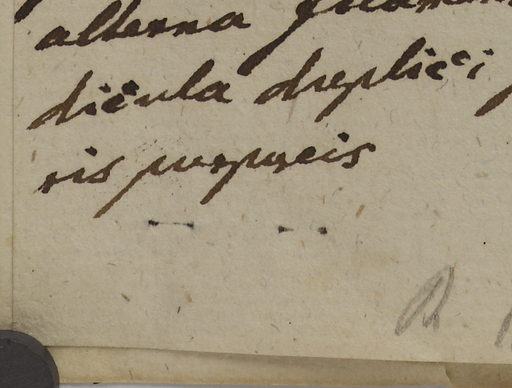 alterna
dicula duplici
ris purpureis